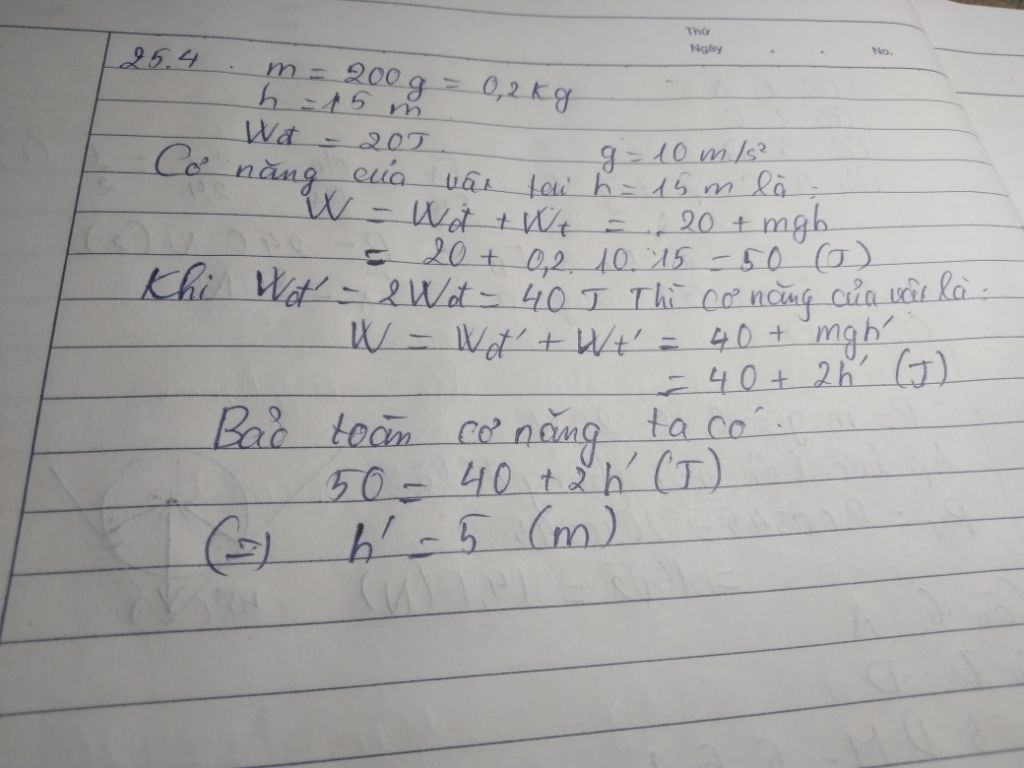 Thứ
Ngày . . No.
25.4 . m = 200g = 0,2Kg
h = 15 m
Wđ = 20J. g = 10 m/s²
Cơ năng của vật tại h = 15 m là:
W = Wđ + Wt = 20 + mgh
= 20 + 0,2. 10. 15 = 50 (J)
Khi Wđ' = 2Wđ = 40 J Thì cơ năng của vật là:
W = Wđ' + Wt' = 40 + mgh'
= 40 + 2h' (J)
Bảo toàn cơ năng ta có:
50 = 40 + 2h' (J)
(=) h' = 5 (m)